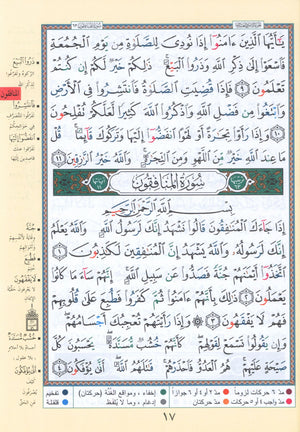 يَٰٓأَيُّهَا ٱلَّذِينَ ءَامَنُوٓا۟ إِذَا نُودِىَ لِلصَّلَوٰةِ مِن يَوْمِ ٱلْجُمُعَةِ
فَٱسْعَوْا۟ إِلَىٰ ذِكْرِ ٱللَّهِ وَذَرُوا۟ ٱلْبَيْعَ ۚ ذَٰلِكُمْ خَيْرٌ لَّكُمْ إِن كُنتُمْ
تَعْلَمُونَ ٩ فَإِذَا قُضِيَتِ ٱلصَّلَوٰةُ فَٱنتَشِرُوا۟ فِى ٱلْأَرْضِ
وَٱبْتَغُوا۟ مِن فَضْلِ ٱللَّهِ وَٱذْكُرُوا۟ ٱللَّهَ كَثِيرًا لَّعَلَّكُمْ تُفْلِحُونَ
١٠ وَإِذَا رَأَوْا۟ تِجَٰرَةً أَوْ لَهْوًا ٱنفَضُّوٓا۟ إِلَيْهَا وَتَرَكُوكَ قَآئِمًا ۚ قُلْ
مَا عِندَ ٱللَّهِ خَيْرٌ مِّنَ ٱللَّهْوِ وَمِنَ ٱلتِّجَٰرَةِ ۚ وَٱللَّهُ خَيْرُ ٱلرَّٰزِقِينَ ١١
سُورَةُ المُنَافِقُونَ
بِسْمِ ٱللَّهِ ٱلرَّحْمَٰنِ ٱلرَّحِيمِ
إِذَا جَآءَكَ ٱلْمُنَٰفِقُونَ قَالُوا۟ نَشْهَدُ إِنَّكَ لَرَسُولُ ٱللَّهِ ۗ وَٱللَّهُ يَعْلَمُ
إِنَّكَ لَرَسُولُهُۥ وَٱللَّهُ يَشْهَدُ إِنَّ ٱلْمُنَٰفِقِينَ لَكَٰذِبُونَ ١
ٱتَّخَذُوٓا۟ أَيْمَٰنَهُمْ جُنَّةً فَصَدُّوا۟ عَن سَبِيلِ ٱللَّهِ ۚ إِنَّهُمْ سَآءَ مَا كَانُوا۟
يَعْمَلُونَ ٢ ذَٰلِكَ بِأَنَّهُمْ ءَامَنُوا۟ ثُمَّ كَفَرُوا۟ فَطُبِعَ عَلَىٰ قُلُوبِهِمْ
فَهُمْ لَا يَفْقَهُونَ ٣ وَإِذَا رَأَيْتَهُمْ تُعْجِبُكَ أَجْسَامُهُمْ ۖ
وَإِن يَقُولُوا۟ تَسْمَعْ لِقَوْلِهِمْ ۖ كَأَنَّهُمْ خُشُبٌ مُّسَنَّدَةٌ ۖ يَحْسَبُونَ كُلَّ
صَيْحَةٍ عَلَيْهِمْ ۚ هُمُ ٱلْعَدُوُّ فَٱحْذَرْهُمْ ۚ قَٰتَلَهُمُ ٱللَّهُ ۖ أَنَّىٰ يُؤْفَكُونَ ٤
ذَرُوا البَيْعَ
المنافقون
جُنَّةً
فَطُبِعَ
لا يَفْقَهُونَ
خُشُبٌ مُسَنَّدَةٌ
أَنَّى يُؤْفَكُونَ
مدّ ٦ حركات لزوماً
مدّ ٢ أو ٤ أو ٦ جوازاً
إخفاء، ومواقع الغُنَّة (حركتان)
تفخيم
مدّ حركتان
إدغام، وما لا يُلفَظ
قلقلة
١٧